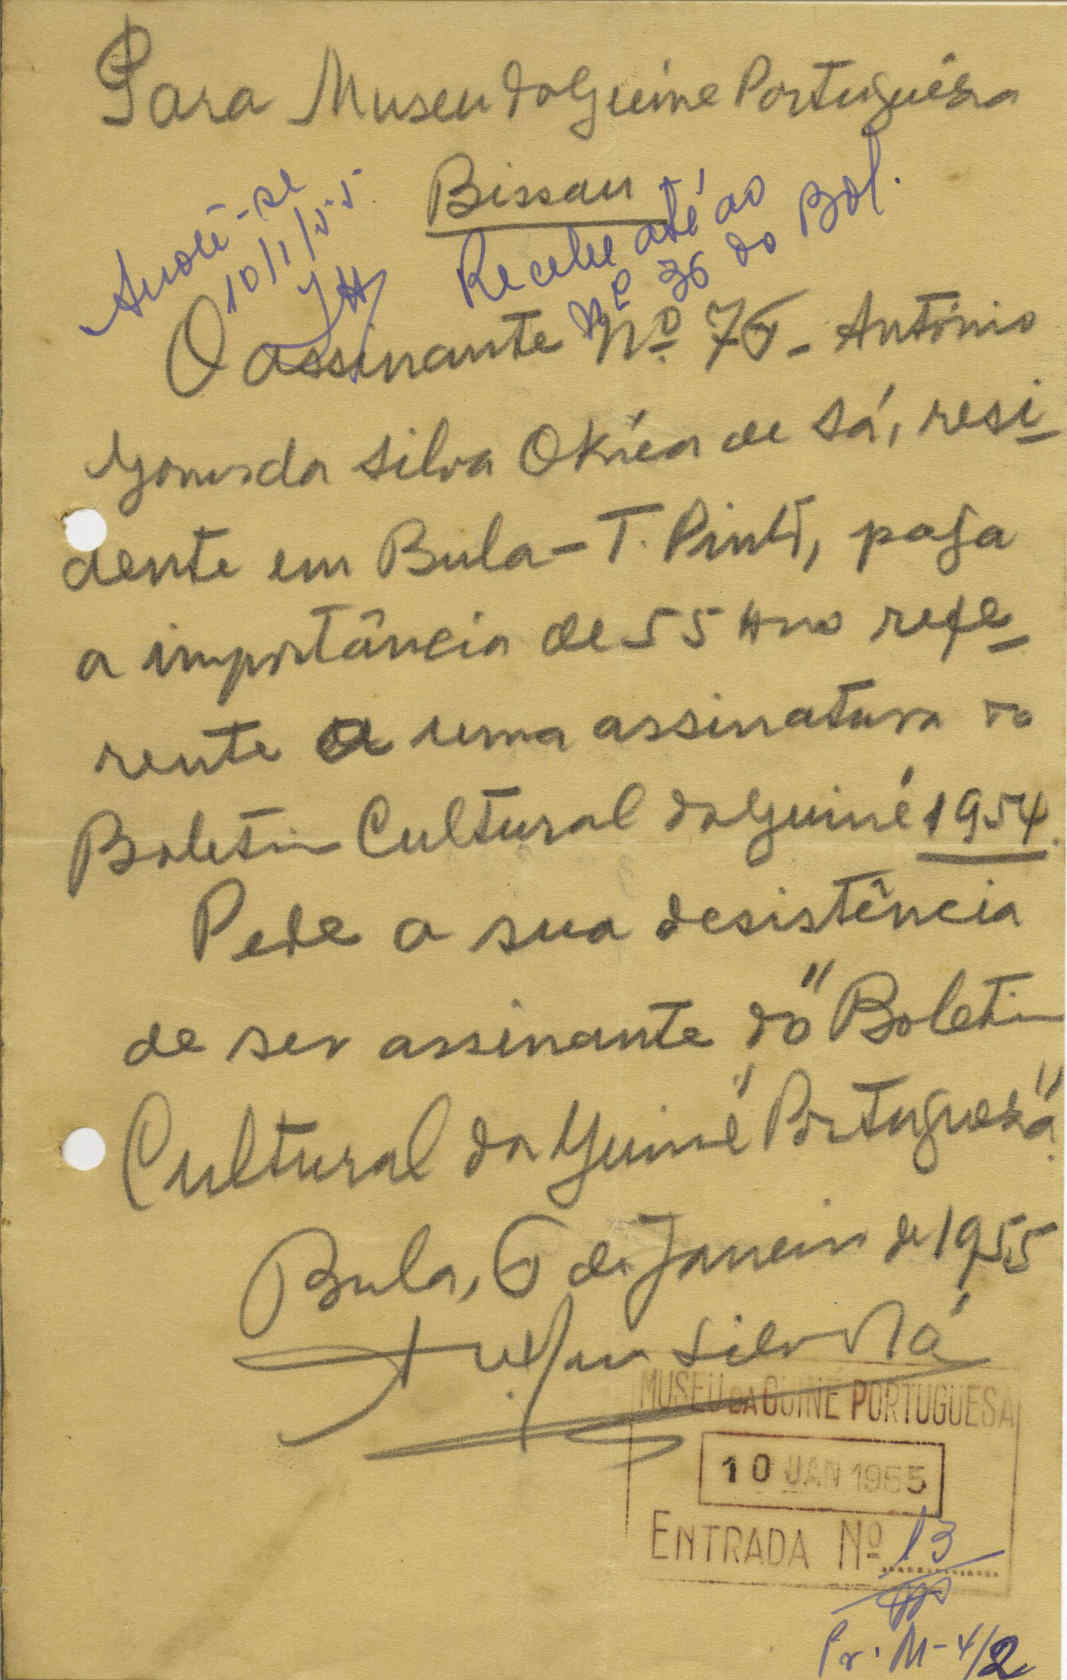 Para Museu da Guine Portuguêsa
Bissau
Anote-se
10/1/55
Recebe até ao
Nº 36 do Bol.
O assinante Nº. 76 - António
da Silva de Sá, resi-
dente em Bula - T. Pinto, paga
a importância de 55 refe-
rente a uma assinatura do
Boletim Cultural da Guiné 1954.
Pede a sua desistência
de ser assinante do "Boletim
Cultural da Guiné Portuguesa".
Bula, 6 de Janeiro de 1955
Silva Sá
MUSEU DA GUINÉ PORTUGUESA
10 JAN 1955
ENTRADA Nº 13
Pr. M-4/2